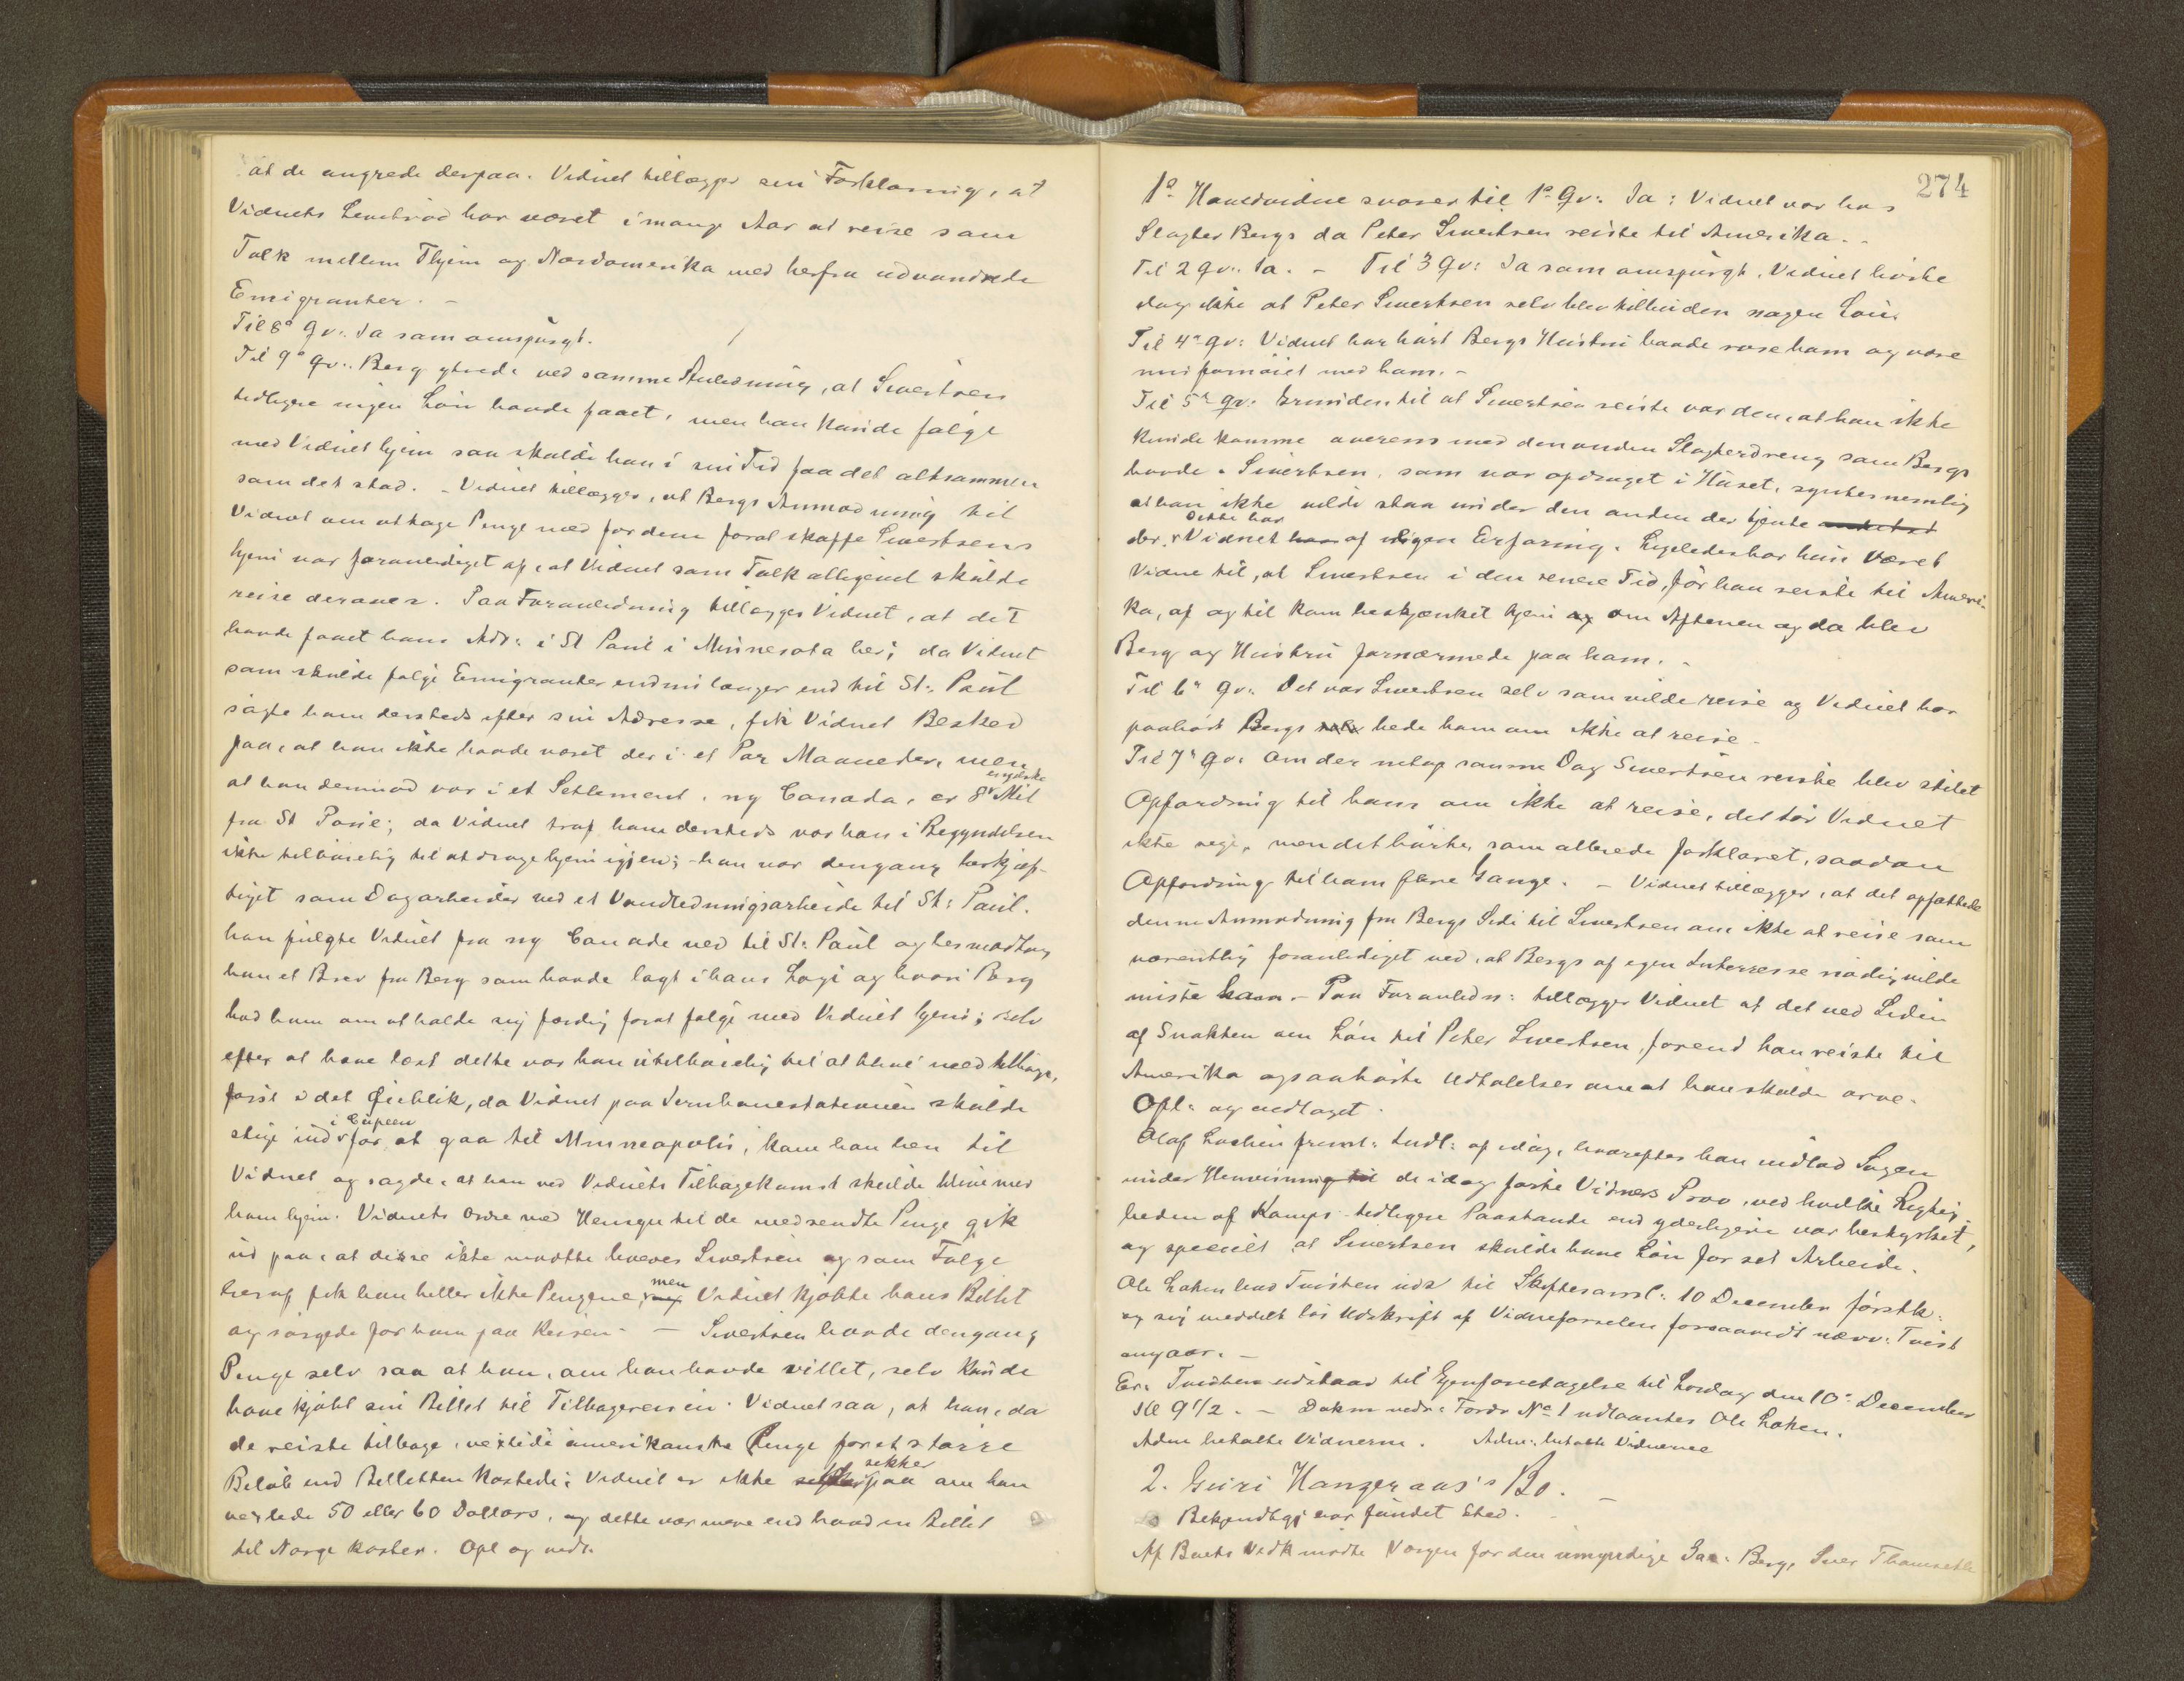 at de angrede derpaa. Vidnet tillægger sin Forklaring, at
Vidnets Levebrød har været i mange Aar at reise som
Tolk mellem Thjem og Nordamerika med herfra udvandrede
Emigranter. –
Til 8de Qv: Ja som omspurgt.
Til 9de Qv: Berg ytrede ved samme Anledning, at Sivertsen
tidligere ingen Løn havde faaet, men han kunde følge
med Vidnet hjem saa skulde han i sin Tid faa det altsammen
som det stod. – Vidnet tillægger, at Bergs Anmodning til
Vidnet om at tage Penge med for dem forat skaffe Sivertsens
hjem var foranlediget af, at Vidnet som Tolk alligevel skulde
reise derover. Paa Foranledning tillægger Vidnet, at det
havde faaet hans Adr: i St Paul i Minnesota her; da Vidnet
som skulde følge Emigranter endnu længer end til St: Paul
søgte ham dersteds efter sin Adresse, fik Vidnet Besked
paa, at han ikke havde været der i et Par Maaneder, men
at han derimod var i et Settlement, ny Canada, er 8 engelske Mil
fra St Paul; da Vidnet traf ham dersteds var han i Begyndelsen
ikke tilbøielig til at drage hjem igjen; han var dengang beskjæf-
tiget som Dagarbeider ved et Vandledningsarbeide til St: Paul.
han fulgte Vidnet fra ny Canade ned til St: Paul og her modtog
han et Brev fra Berg som havde lagt i hans Logi og hvori Berg
bad ham om at holde sig færdig forat følge med Vidnet hjem; selv
efter at have læst dette var han utilbøielig til at blive med tilbage,
først i det Øieblik, da Vidnet paa Jernbanestationen skulde
stige ind i Cupeen for at gaa til Minneapolis, kom han hen til
Vidnet og sagde, at han ved Vidnets Tilbagekomst skulde blive med
ham hjem. Vidnets Ordre med Hensyn til de medsendte Penge gik
ud paa, at disse ikke maatte leveres Sivertsen og som Følge
heraf fik han heller ikke Pengene, men Vidnet kjøbte hans Billet
og sørgede for ham paa Reisen. – Sivertsen havde dengang
Penge selv saa at han, om han havde villet, selv kunde
have kjøbt sin Billet til Tilbagereisen. Vidnet saa, at han, da
de reiste tilbage, vexlede amerikanske Penge for et større
Beløb end Billetten kostede; Vidnet er ikke sikker paa om han
vexlede 50 eller 60 Dollars, og dette var mere end hvad en Billet
til Norge koster. Opl og vedt.
274
1ste Hovedvidne svarer til 1ste Qv: Ja: Vidnet var hos
Slagter Bergs da Peter Sivertsen reiste til Amerika. –
Til 2 Qv: Ja. – Til 3 Qv: Ja som omspurgt. Vidnet hørte
dog ikke at Peter Sivertsen selv blev tilbuden nogen Løn.
Til 4de Qv: Vidnet har hørt Bergs Hustru baade rose ham og være
misfornøiet med ham. –
Til 5te Qv: Grunden til at Sivertsen reiste var den, at han ikke
kunde komme overens med den anden Slagterdreng som Bergs
havde. Sivertsen, som var opdraget i Huset, syntes nemlig
at han ikke vilde staa under den anden der tjente
der. Dette har Vidnet af egen Erfaring. Ligeledes har hun været
Vidne til, at Sivertsen i den senere Tid, før han reiste til Ameri-
ka, af og til kom beskjænket hjem om Aftenen og da blev
Berg og Hustru fornærmede paa ham. –
Til 6te Qv: Det var Sivertsen selv som vilde reise og Vidnet har
paahørt Bergs bede ham om ikke at reise –
Til 7de Qv: Om der netop samme Dag Sivertsen reiste blev stilet
Opfordring til ham om ikke at reise, det tør Vidnet
ikke sige, men det hørte, som allerede forklaret, saadan
Opfordring til ham flere Gange. – Vidnet tillægger, at det opfattede
denne Anmodning fra Bergs Side til Sivertsen om ikke at reise som
væsentlig foranlediget ved, at Bergs af egen Interesse nødig vilde
miste ham. – Paa Foranledn: tillægger Vidnet at det ved Siden
af Snakken om Løn til Peter Sivertsen, forend han reiste til
Amerika ogsaa hørte Udtalelser om at han skulde arve.
Opl: og vedtaget.
Olaf Løchen freml: Indl: af idag, hvorefter han indlod Sagen
under Henvisning til de idag førte Vidners Prov, ved hvilke Rigtig
heden af Kamps tidligere Paastande end yderligere var bestyrket,
og specielt at Sivertsen skulde have Løn for sit Arbeide.
Ole Løken lend Tvisten uds til Skiftesaml: 10 December førstk:
og sig meddelt løs Udskrift af Vidneførselen forsaavidt nærv: Tvist
angaar. –
Er: Tvisten udstaar til Gjenforetagelse til Lørdag den 10de December
Kl 9 1/2. – Dokm vedr: Fordr No 1 udlaantes Ole Løken.
Adm betalte Vidnerne. Adm: betalte Vidnerne
2. Guri Hangeraas's Bo. –
Bekjendtgj var fundet Sted.
Af Boets Vedk mødte Værgen for den umyndige Berg, Siver